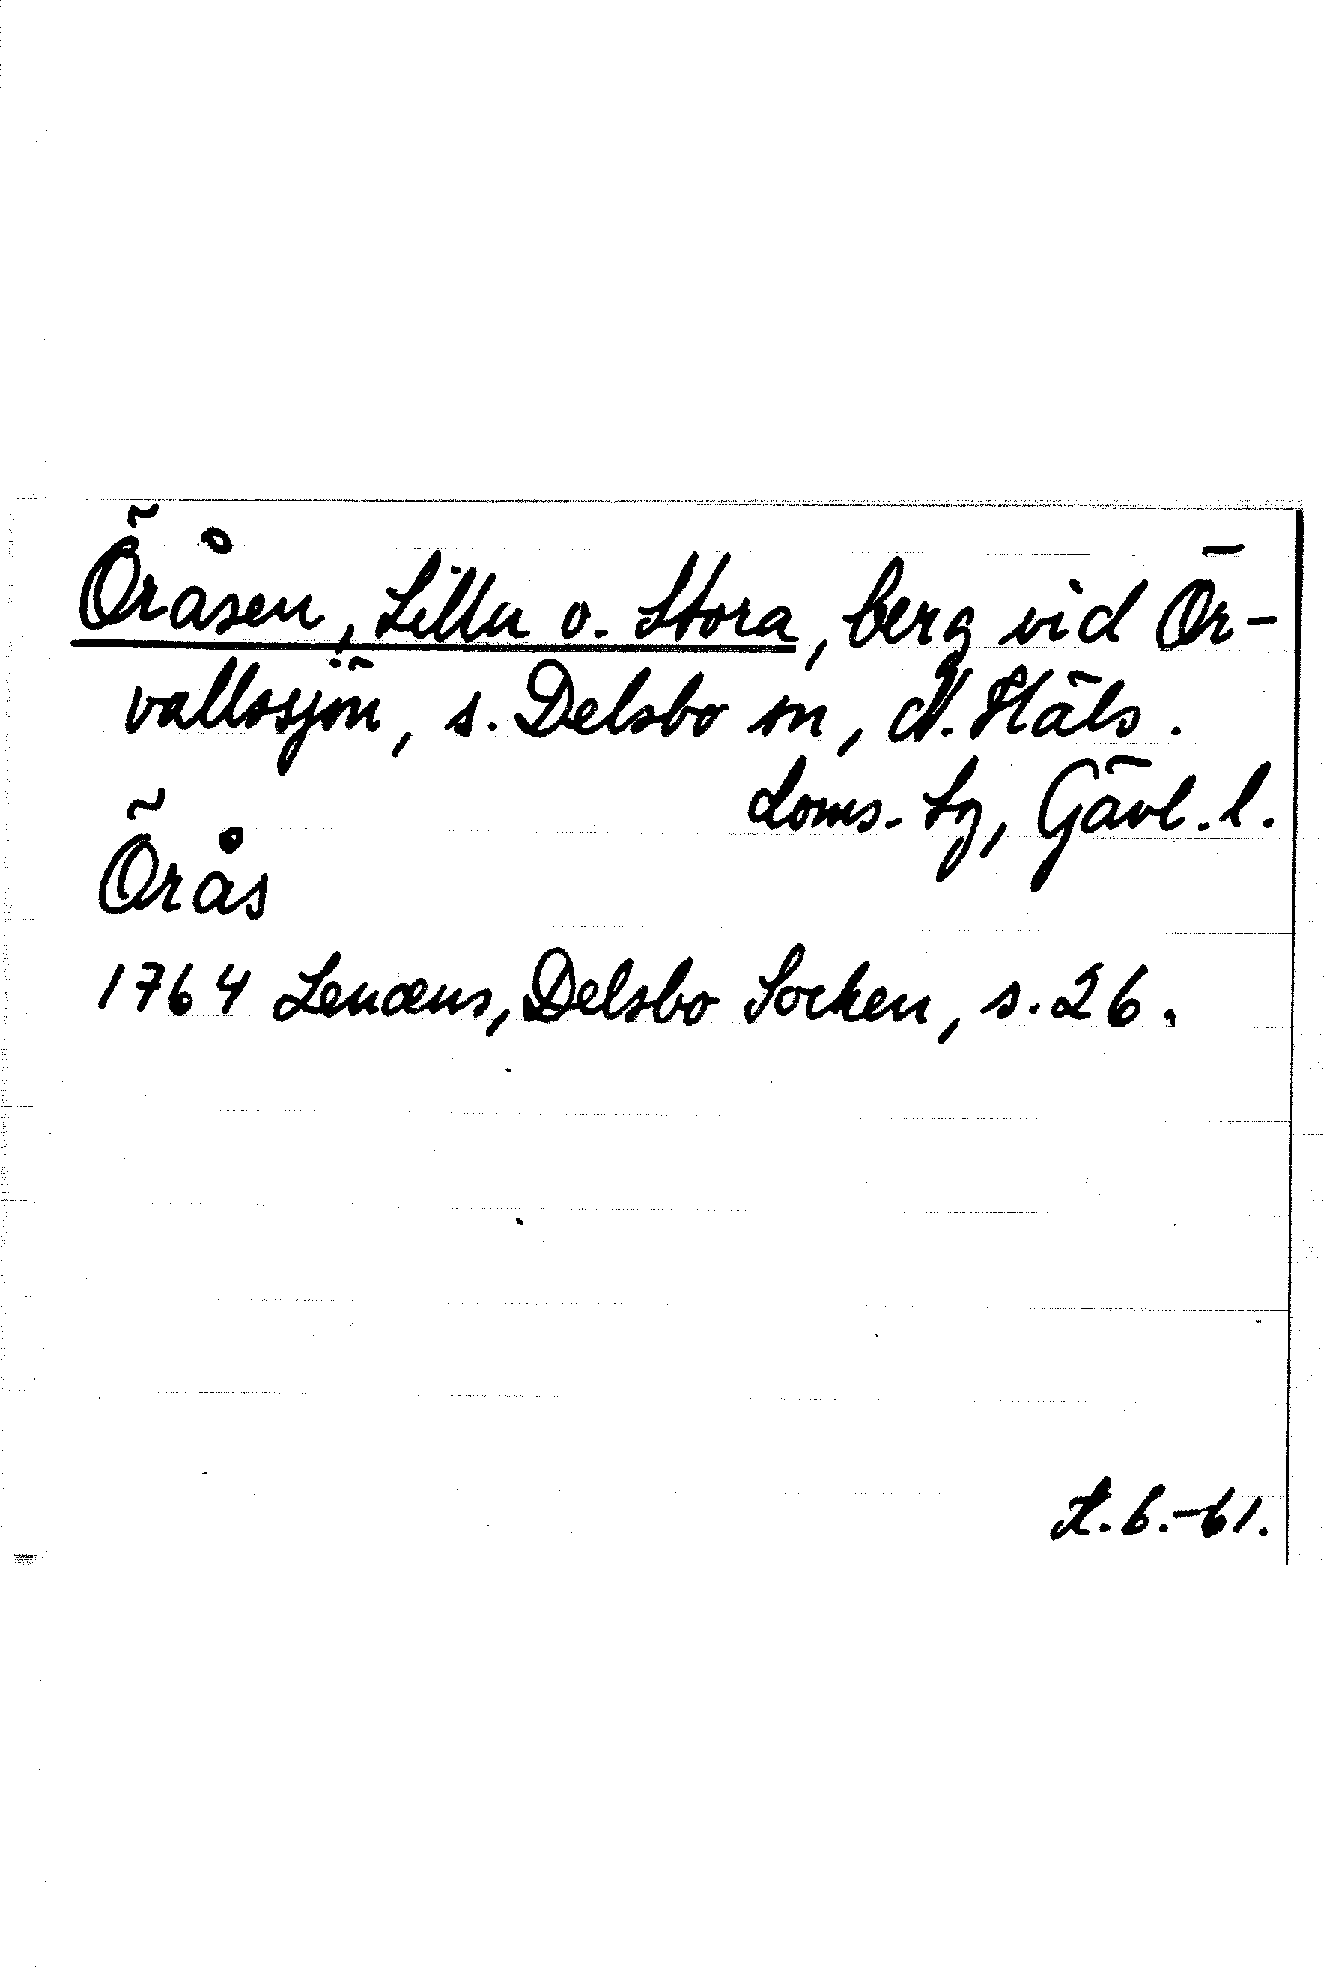 Öråsen, Lilla o. Stora, berg vid Ör-
vallssjön, s. Delsbo sn, N. Häls.
Doms-Lg, Gävl. l.
Örås
1764 Lenæus, Delsbo Socken, s. 26.
6.-61.